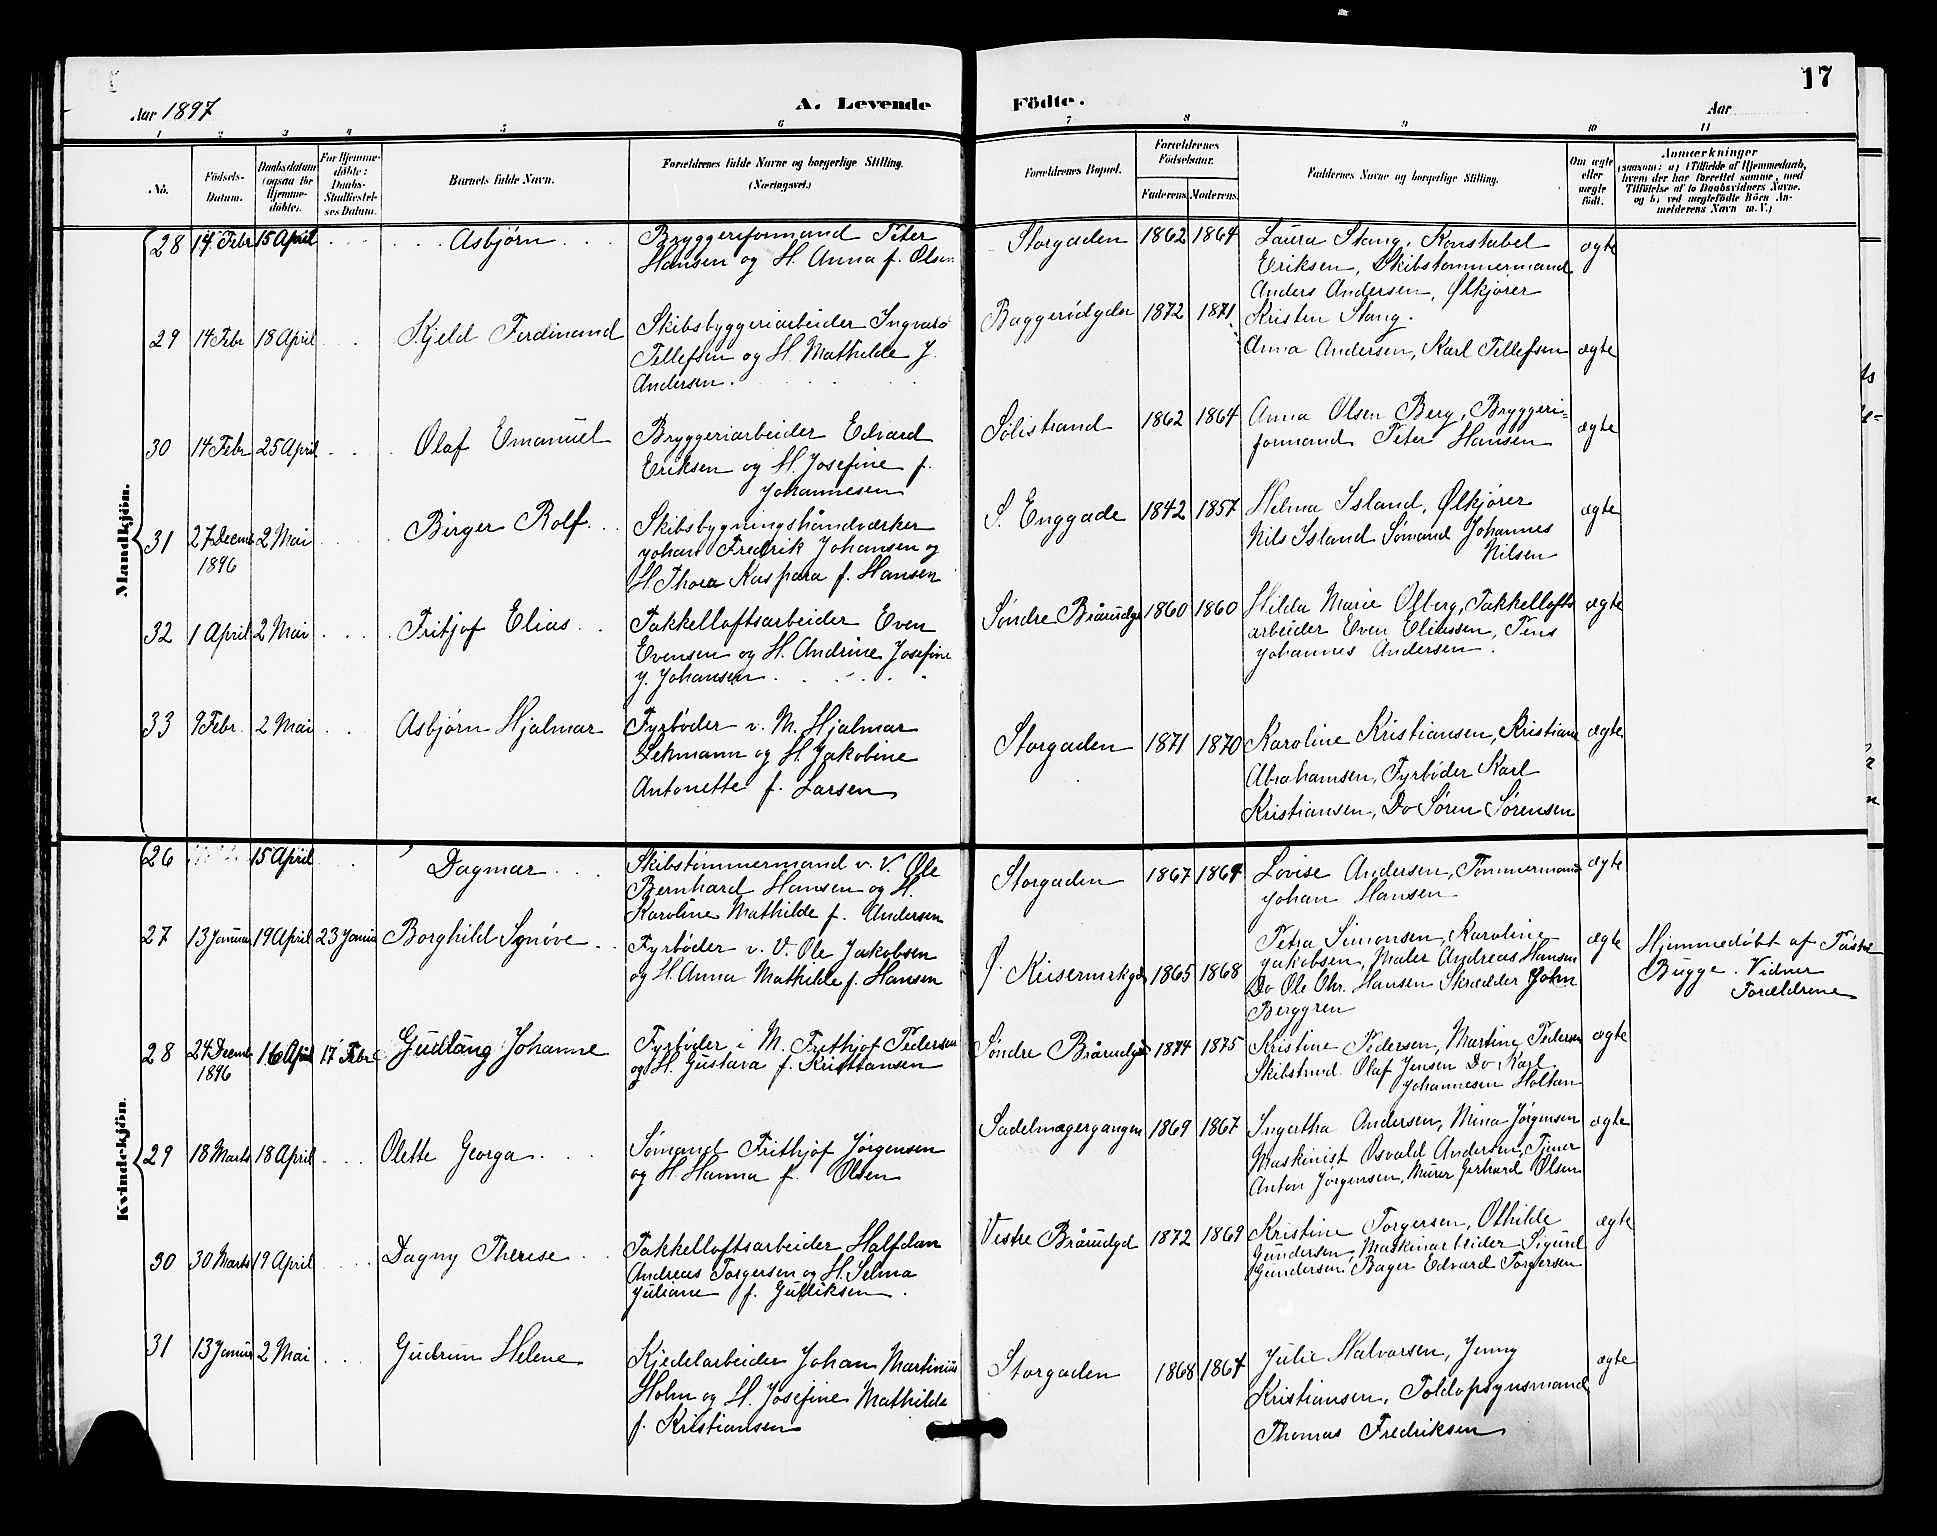 17
Aar 1897
A. Levende Födte.
Aar
1 2 3 4 5 6 7 8 9 10 11
No.
Födsels-Datum.
Daabsdatum (ogsaa for Hjemmedöbte).
For Hjemmedöbte: Daabs-Stadfestelses Datum.
Barnets fulde Navn.
Forældrenes fulde Navne og borgerlige Stilling. (Næringsvei.)
Forældrenes Bopæl.
Forældrenes Födselsaar.
Faderens Moderens
Faddernes Navne og borgerlige Stilling.
Om ægte eller uægte födt.
Anmærkninger
(saasom: a) i Tilfælde af Hjemmedaab, hvem der har forrettet samme, med Tilföielse af to Daabsvidners Navne, og b) ved uægtefödte Börn Anmelderens Navn m. V.)
Mandkjön.
28 14 Febr 15 April Asbjørn
Bryggeriformand Peter
Hansen og H. Anna f. Olsen
Storgaden 1862 1864
Laura Stang, Konstabel
Eriksen, Skibstømmermand
Anders Andersen, Ølkjører
Kristen Stang.
ægte
29 14 Febr 18 April Kjeld Ferdinand
Skibsbyggeriarbeider Ingvald
Tellefsen og H. Mathilde f.
Andersen.
Baggerødgdn 1872 1871
Anna Andersen, Karl Tellefsen
ægte
30 14 Febr 25 April Olaf Emanuel
Bryggeriarbeider Edvard
Eriksen og H. Josefine f.
Johannesen
Sølistrand 1862 1864
Anna Olsen Berg, Bryggeri-
formand Peter Hansen
ægte
31 27 Decmb 1896 2 Mai Birger Rolf
Skibsbygningshåndværker
Johan Fredrik Johansen og
H. Thora Kaspara f. Hansen
S. Enggade 1842 1857
Helma Island, Ølkjører
Nils Island Sømand Johannes
Nilsen
ægte
32 1 April 2 Mai Fritjof Elias
Takkelloftsarbeider Even
Evensen og H. Andrine Josefine
f. Johansen
Søndre Brårudgd 1860 1860
Hilda Marie Olberg, Takkellofts
arbeider Even Eliassen, Tens
Johannes Andersen.
ægte
33 9 Febr. 2 Mai Asbjørn Hjalmar
Fyrbøder v. M. Hjalmar
Lehmann og H. Jakobine
Antonette f. Larsen
Storgaden 1871 1870
Karoline Kristiansen, Kristiane
Abrahamsen, Fyrbøder Karl
Kristiansen, Do Søren Sørensen
ægte
Kvindekjön.
26 15 April Dagmar
Skibstømmermand v. V. Ole
Bernhard Hansen og H.
Karoline Mathilde f. Andersen
Storgaden 1867 1864
Lovise Andersen, Tømmermand
Johan Hansen
ægte
27 13 Januar 19 April 23 Januar Borghild Synøve
Fyrbøder v. V. Ole Jakobsen
og H. Anna Mathilde f. Hansen
Ø. Keisermrkgd 1865 1868
Petra Simonsen, Karoline
Jakobsen, Maler Andreas Hansen
Do Ole Chr. Hansen Skrædder John
Berggren
ægte
Hjemmedøbt af Pastor
Bugge. Vidner
Forældrene
28 24 Decmb 1896 16 April 17 Febr Gudlaug Johanne
Fyrbøder i M. Frithjof Pedersen
og H. Gustava f. Kristiansen
Søndre Brårudgd 1874 1875
Kristine Pedersen, Martine Pedersen
Skibstmd. Olaf Jensen Do Karl
Johannesen Holtan
ægte
29 18 Marts 18 April Olette Georga
Sømand Frithjof Jørgensen
og H. Hanna f. Olsen
Sadelmagergangen 1869 1867
Ingertha Andersen, Mina Jørgensen
Maskinist Osvald Andersen, Tjener
Anton Jørgensen, Murer Gerhard Olsen
ægte
30 30 Marts 19 April Dagny Therese
Takkelloftsarbeider Halfdan
Andreas Torgersen og H. Selma
Juliane f. Gulliksen.
Vestre Brårudgd 1872 1869
Kristine Torgersen, Othilde
Gundersen, Maskinarbeider Sigurd
Gundersen, Bager Edvard Torgersen
ægte
31 13 Januar 2 Mai Gudrun Helene
Kjedelarbeider Johan Martinius
Holm og H. Josefine Mathilde
f. Kristiansen
Storgaden 1868 1864
Julie Halvorsen, Jenny
Kristiansen, Toldopsynsmand
Thomas Fredriksen
ægte